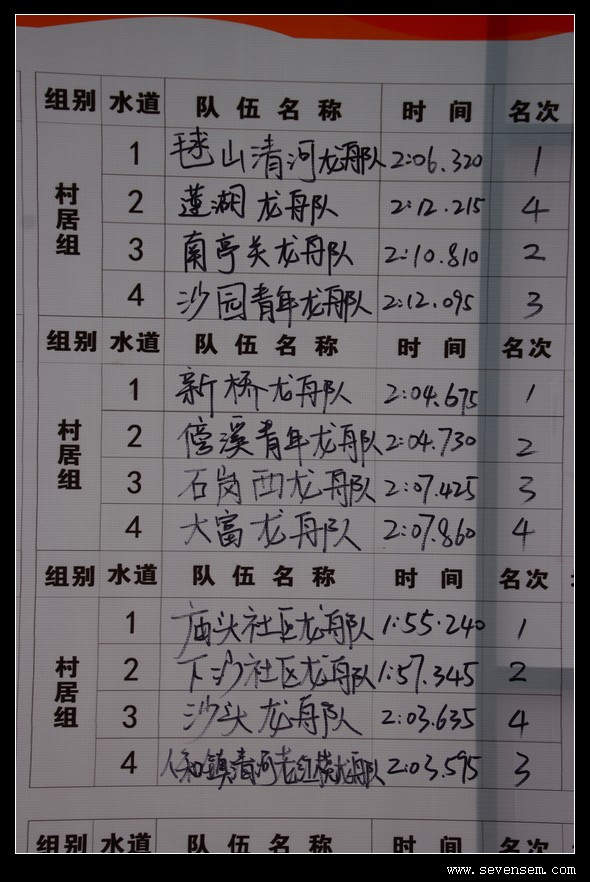 组别 水道 队伍名称 时间 名次
村居组
1 毬山清河龙舟队 2:06.320 1
2 莲湖龙舟队 2:12.215 4
3 南亭关龙舟队 2:10.810 2
4 沙园青年龙舟队 2:12.095 3
组别 水道 队伍名称 时间 名次
村居组
1 新桥龙舟队 2:04.675 1
2 傍溪青年龙舟队 2:04.730 2
3 石岗西龙舟队 2:07.425 3
4 大富龙舟队 2:07.860 4
组别 水道 队伍名称 时间 名次
村居组
1 庙头社区龙舟队 1:55.240 1
2 下沙社区龙舟队 1:57.345 2
3 沙头龙舟队 2:03.635 4
4 人和镇清河老红模龙舟队 2:03.595 3
组别 水道 队伍名称 时间 名次
www.sevensem.com